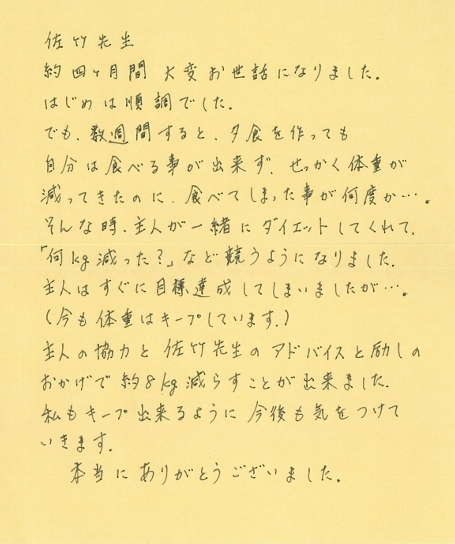 佐竹先生
約四ヶ月間 大変お世話になりました。
はじめは順調でした。
でも、数週間すると、夕食を作っても
自分は食べる事が出来ず、せっかく体重が
減ってきたのに、食べてしまった事が何度か…。
そんな時、主人が一緒にダイエットしてくれて、
「何kg減った?」など競うようになりました。
主人はすぐに目標達成してしまいましたが…。
(今も体重はキープしています。)
主人の協力と佐竹先生のアドバイスと励しの
おかげで約8kg減らすことが出来ました。
私もキープ出来るように今後も気をつけて
いきます。
本当にありがとうございました。